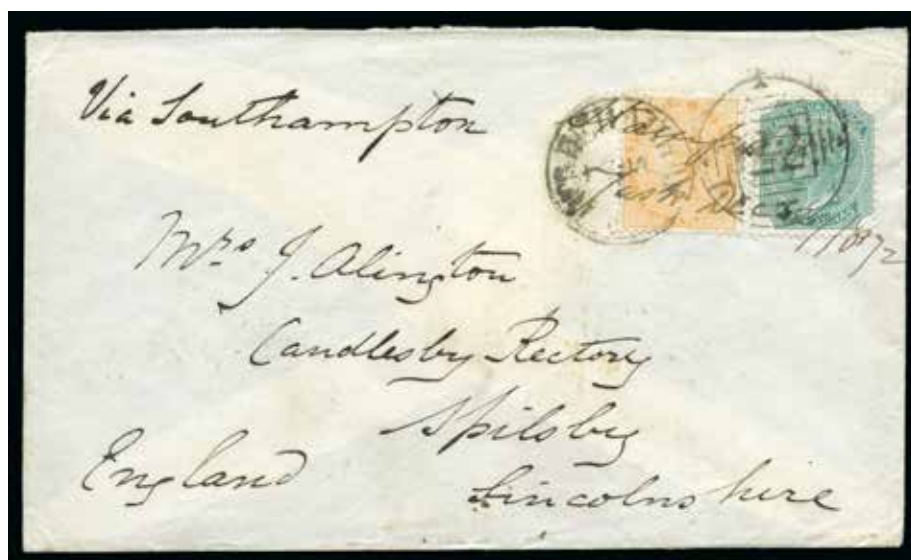 Via Southampton
Mrs J. Alington
Candlesby Rectory
Spilsby
England
Lincolnshire